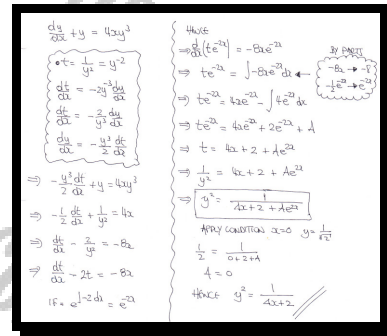 dy/dx + y = 4xy³
• t = 1/y² = y⁻²
dt/dx = -2y⁻³ dy/dx
dt/dx = -2/y³ dy/dx
dy/dx = -y³/2 dt/dx
⇒ -y³/2 dt/dx + y = 4xy³
⇒ -1/2 dt/dx + 1/y² = 4x
⇒ dt/dx - 2/y² = -8x
⇒ dt/dx - 2t = -8x
IF = e^∫-2dx = e^-2x
HENCE
⇒ d/dx(te^-2x) = -8xe^-2x
⇒ te^-2x = ∫-8xe^-2x dx
BY PARTS
-8x → -8
-1/2 e^-2x → e^-2x
⇒ te^-2x = 4xe^-2x - ∫4e^-2x dx
⇒ te^-2x = 4xe^-2x + 2e^-2x + A
⇒ t = 4x + 2 + Ae^2x
⇒ 1/y² = 4x + 2 + Ae^2x
⇒ y² = 1/(4x + 2 + Ae^2x)
APPLY CONDITION x=0 y = 1/√2
1/2 = 1/(0+2+A)
A = 0
HENCE y² = 1/(4x+2)